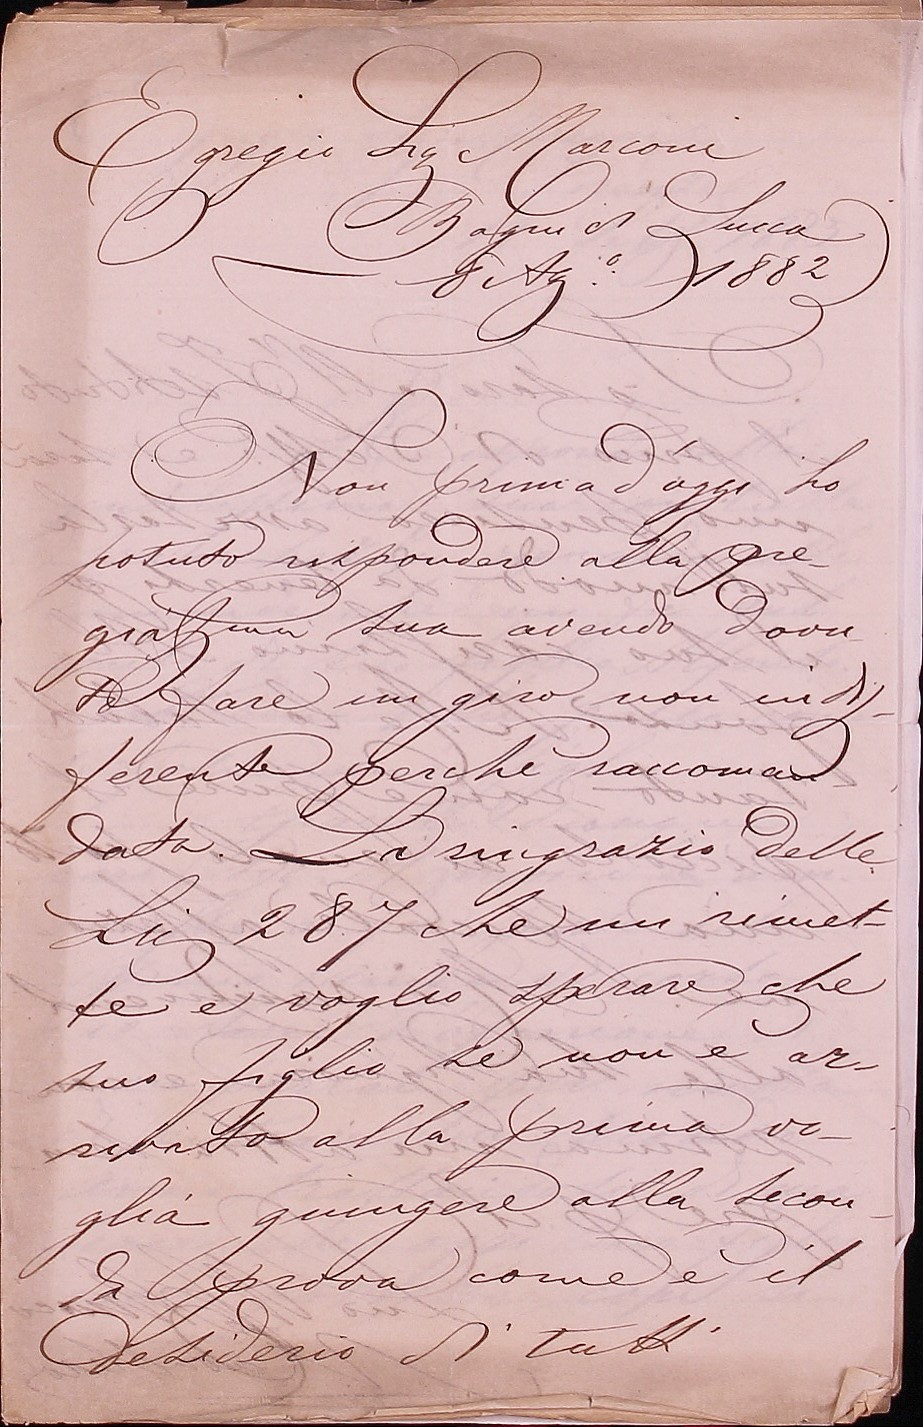 Egregio Sig Marconi
Bagni di Lucca
8 Ag.º 1882
Non prima d'oggi ho
potuto rispondere alla pre-
giatissima sua avendo dovu
to fare un giro non indif-
ferente perchè raccoman
data. La ringrazio delle
Lire 287 che mi rimet-
te e voglio sperare che
suo figlio se non è ar-
rivato alla prima vo-
glia giungere alla secon-
da prova come è il
desiderio di tutti